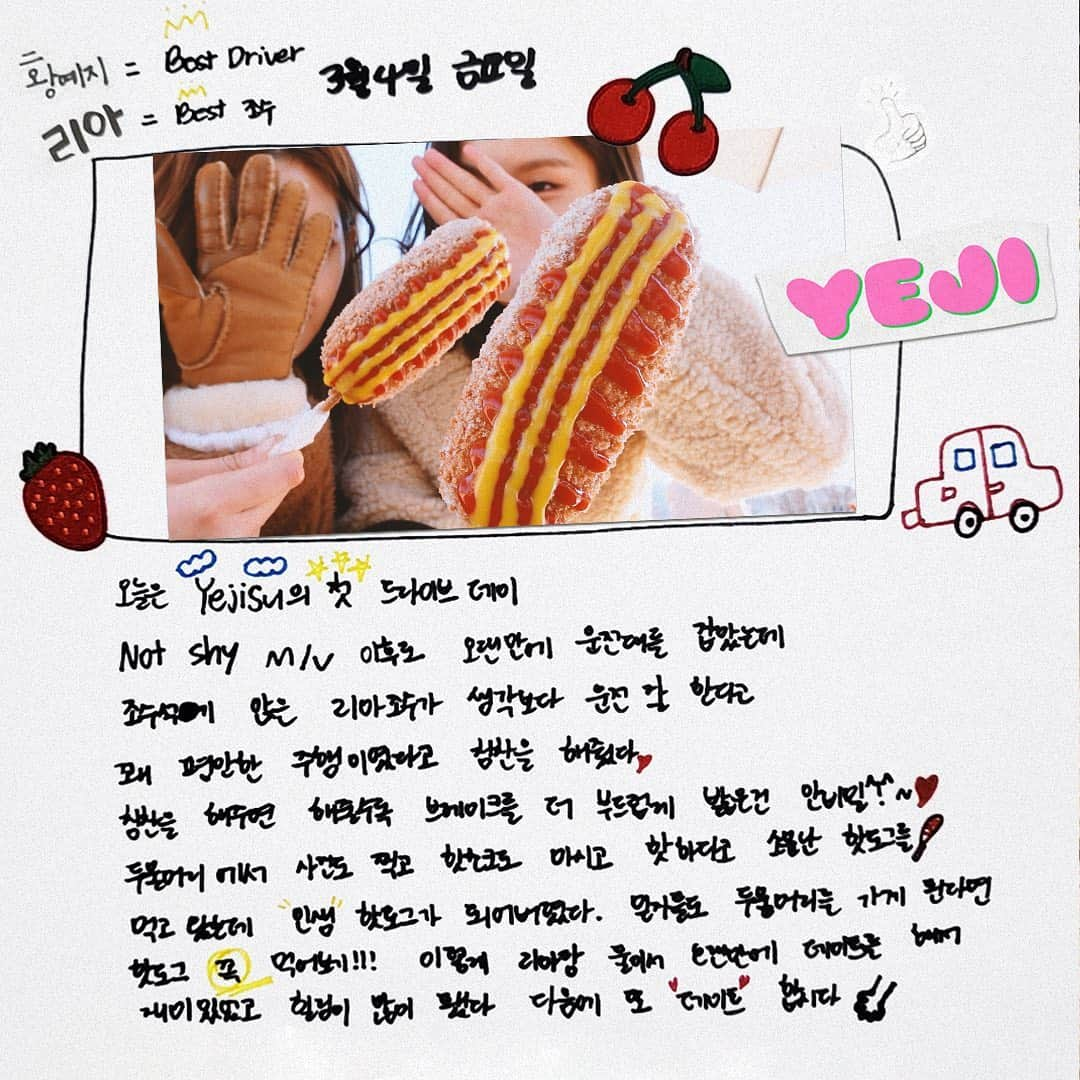 황예지 = Best Driver
리아 = Best 조수
3월 4일 금요일
YEJI
오늘은 Yejisu의 첫 드라이브 데이
Not shy M/V 이후로 오랜만에 운전대를 잡았는데
조수석에 앉은 리아 조수가 생각보다 운전 잘 한다고
꽤 편안한 주행이였다고 칭찬을 해줬다
칭찬을 해주면 해줄수록 브레이크를 더 부드럽게 밟은건 안비밀^^~
두물머리에서 사진도 찍고 핫초코도 마시고 맛하다고 소문난 핫도그를
먹고 왔는데 "인생" 핫도그가 되어버렸다. 믿지들도 두물머리를 가게 된다면
핫도그 꼭 먹어보기!!! 이렇게 리아랑 둘이서 오랜만에 데이트를 해서
재미있었고 힐링이 많이 됐다 다음에 또 "데이트" 합시다